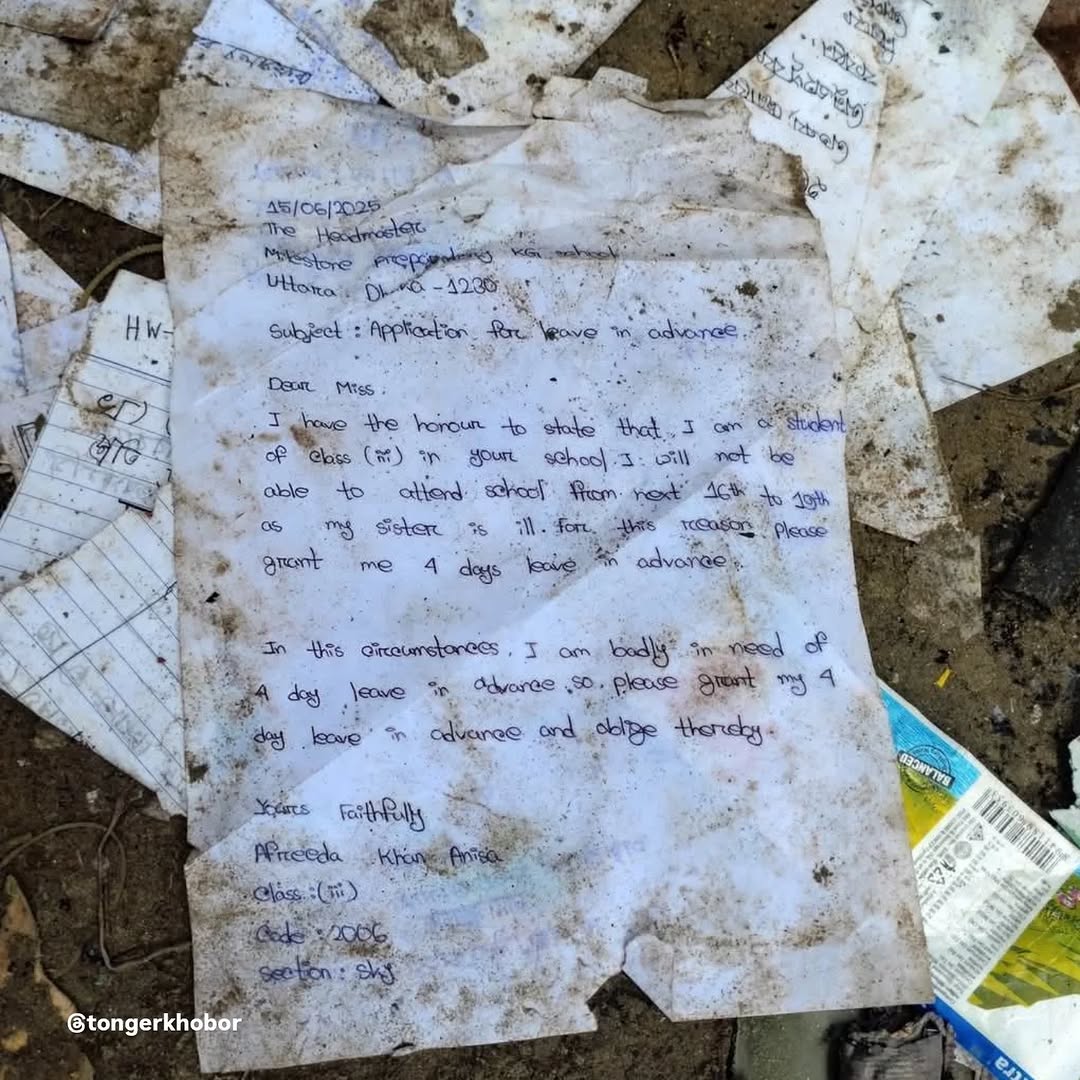 15/06/2025
The Headmaster
Milestone Preparatory KG school
Uttara, Dhaka-1230
Subject : Application for leave in advance.
Dear Miss,
I have the honour to state that, I am a student
of class (iii) in your school. I will not be
able to attend school from next 16th to 19th
as my sister is ill. For this reason Please
grant me 4 days leave in advance.
In this circumstances, I am badly in need of
4 day leave in advance, so, please grant my 4
day leave in advance and oblige thereby.
Yours Faithfully
Afreeda Khan Anisa
Class :(iii)
Code : 2006
Section : Sky
HW-
BALANCED
@tongerkhobor